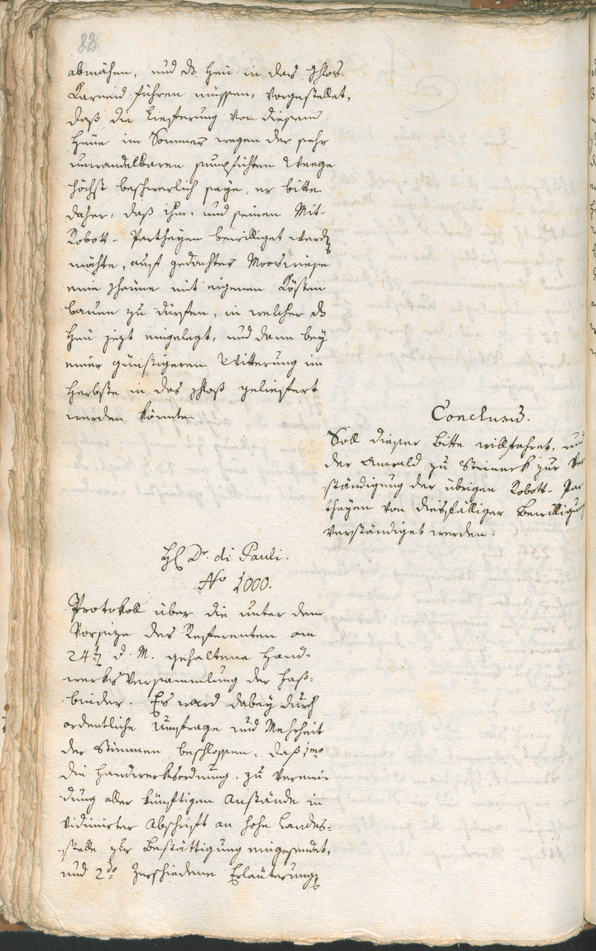 82
abmähen, und ds Heu in das Schlos
Karneid führen müssen, vorgestellet,
daß die Lieferung von diesem
Heue im Sommer wegen der sehr
unwandelbaren sumpfichten Weege
höchst beschwerlich seye, er bitte
daher, daß ihm, und seinen Mit-
Robott-Partheyen bewilliget werden
möchte, auf gedachter Mooswiese
eine Scheune mit eigenen Kösten
bauen zu dürfen, in welcher ds
Heu jezt eingelegt, und dann bey
einer günstigeren Witterung im
Herbste in das Schloß geliefert
werden könnte.
Conclusum.
Soll dieser Bitte willfahret, und
der Anwald zu Steineck zur Ver-
ständigung der übrigen Robott-Par
theyen von diesfälliger Bewilligung
verständiget werden.
H. Dr. di Pauli.
No 1000.
Protokoll über die unter dem
Vorsize des Referenten am
24ten d. M. gehaltene Hand-
werks Versammlung der Faß-
binder. Es ward dabey durch
ordentliche Umfrage und Mehrheit
der Stimmen beschlossen, daß 1mo
die Handwerksordnung, zu Vermei-
dung aller künftigen Anstände in
vidimirter Abschrift an hohe Landes-
stelle zur Bestättigung eingesendet,
und 2do Verschiedene Erläuterungen